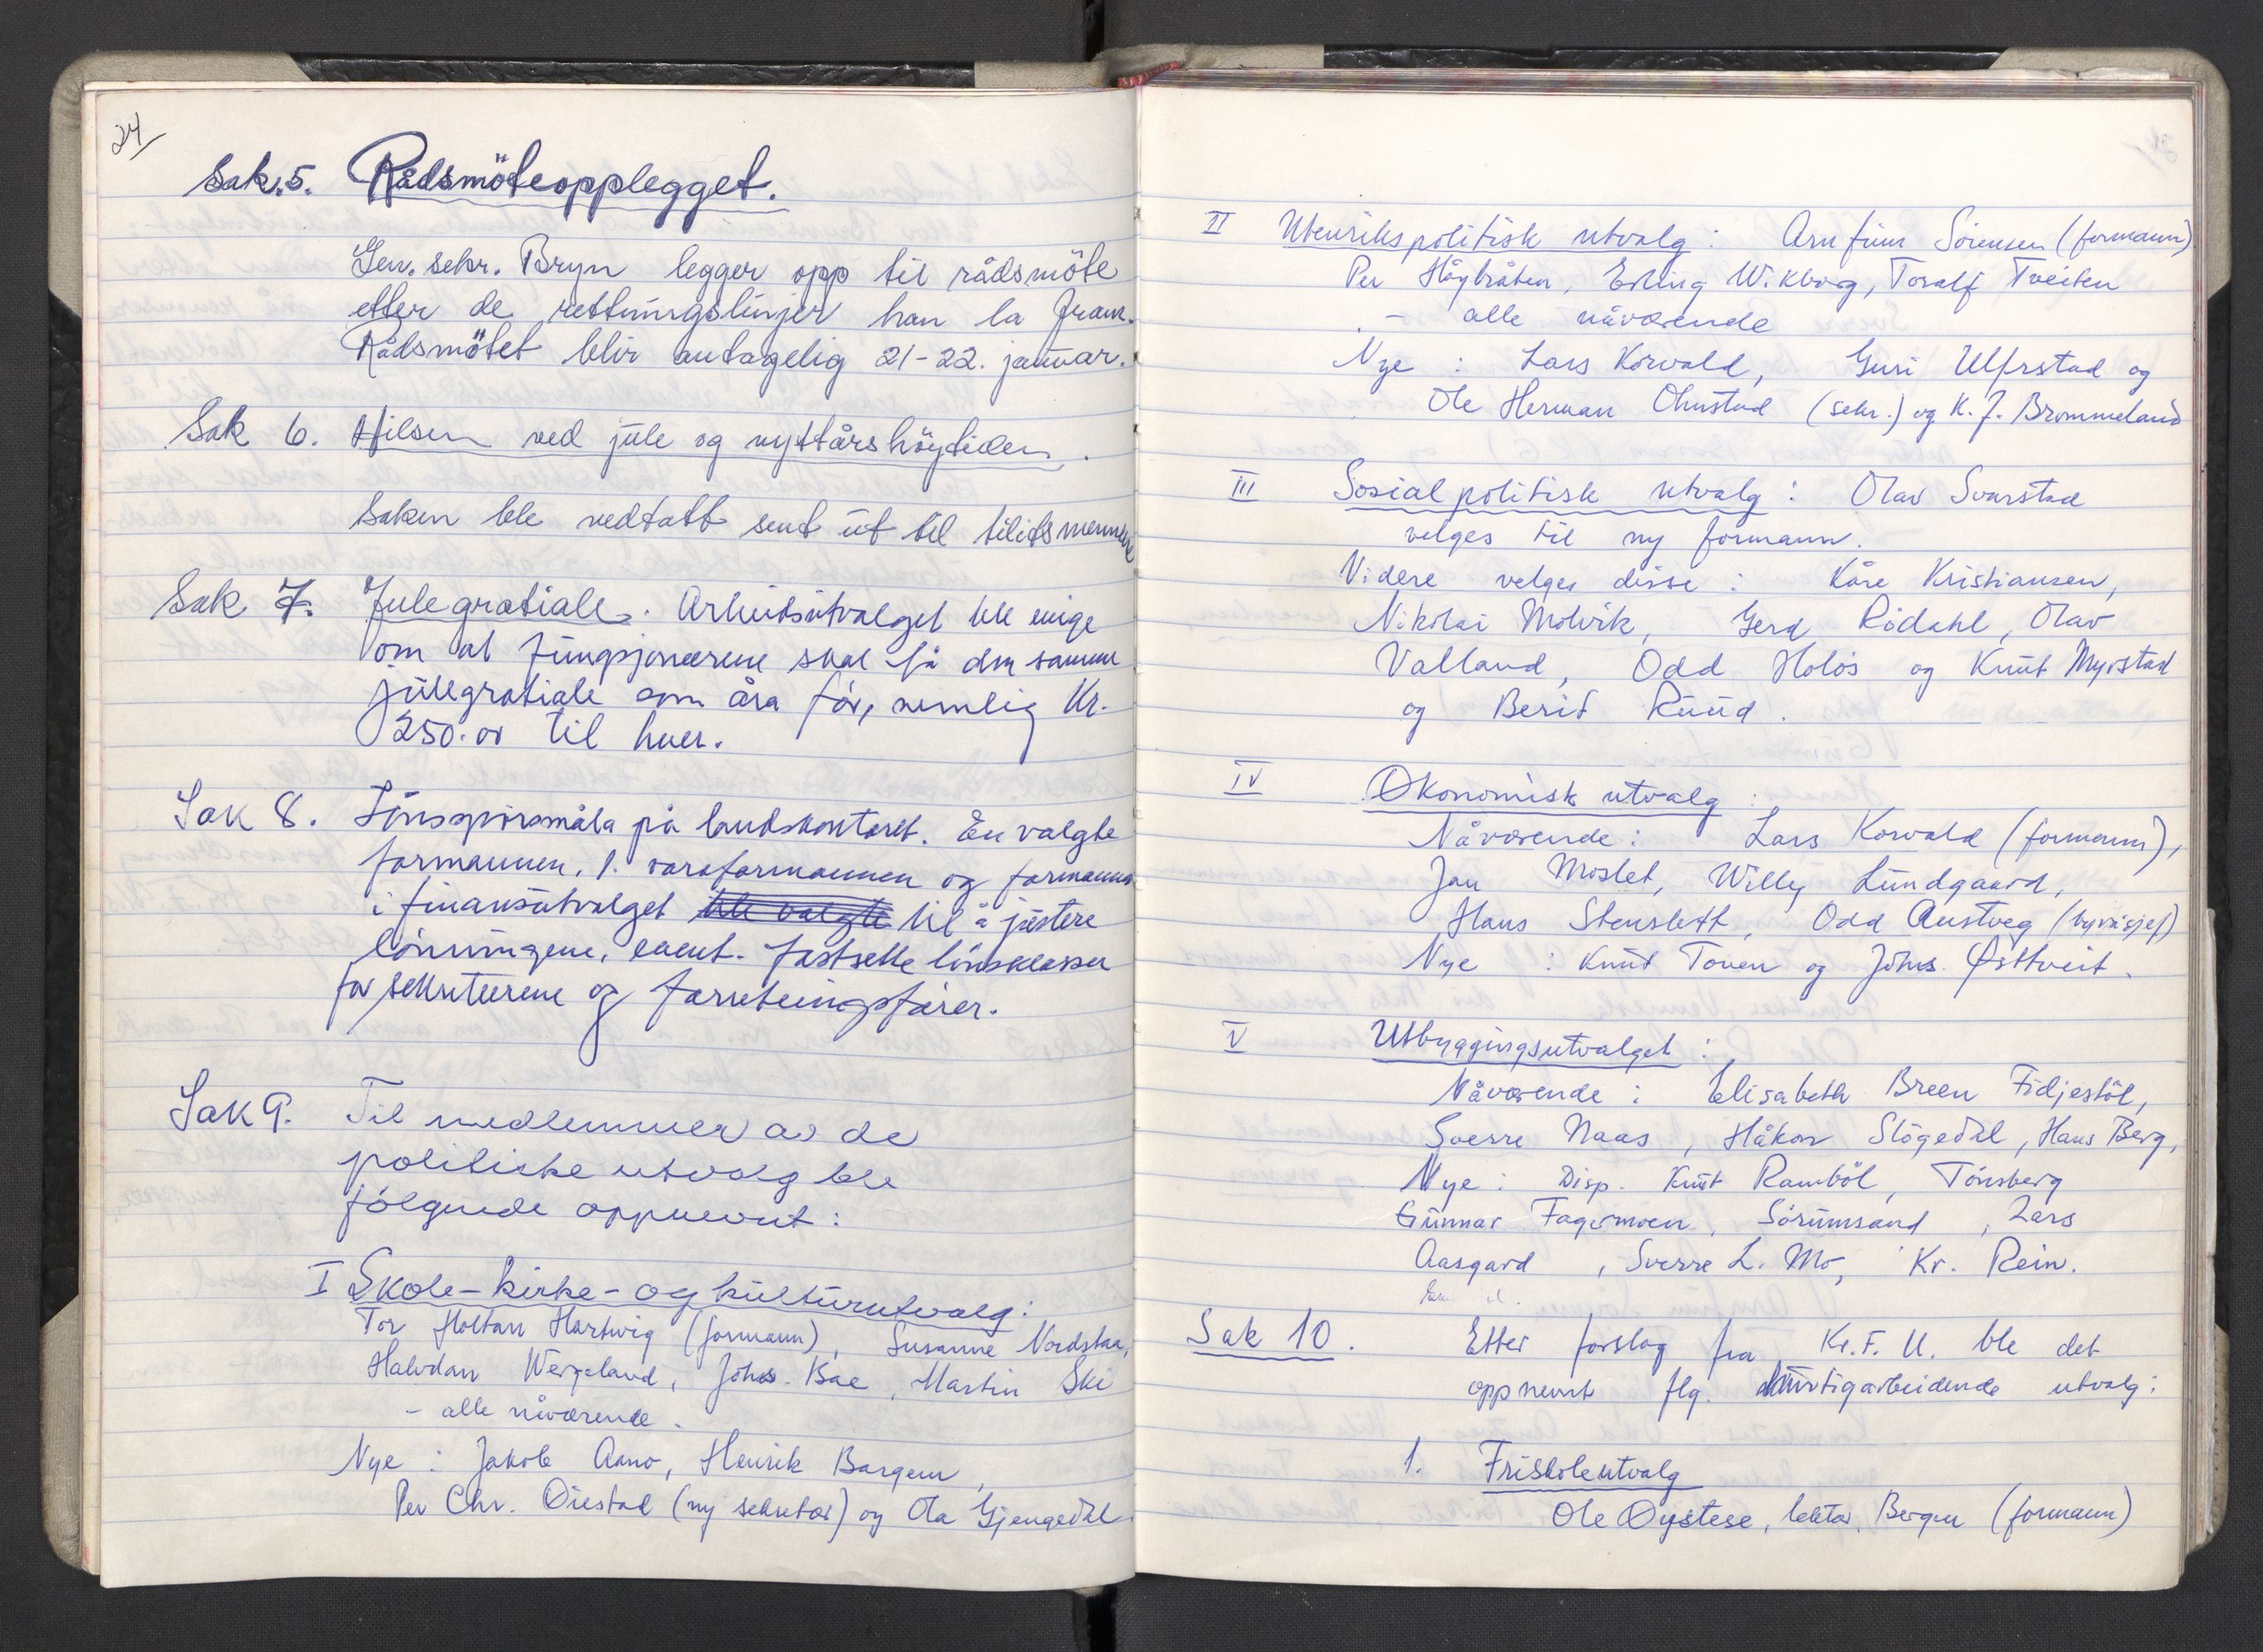 24
Sak. 5. Rådsmöteopplegget.
Gen. sekr. Bryn legger opp til rådsmöte
etter de rettningslinjer han la fram.
Rådsmötet blir antagelig 21-22. januar.
Sak 6. Hilsen ved jule og nyttårshöytiden.
Saken ble vedtatt sent ut til tilitsmennene
Sak 7. Julegratiale. Arbeidsutvalget ble enige
om at fungsjonærene skal få den samme
julegratiale som åra för, nemlig kr.
250.00 til hver.
Sak 8. Lönsspörsmåla på landskontoret. En valgte
formannen, 1. varaformannen og formannen
i finansutvalget ble valgte til å justere
lönningene, event. fastsette lönsklasser
for sekreterene og forretningsförer.
Sak 9. Til medlemmer av de
politiske utvalg ble
fölgende oppnevnt:
I Skole-kirke- og kulturutvalg:
Tor Holtan Hartwig (formann), Susanne Nordstaa,
Halvdan Wergeland, Johs. Bae, Martin Ski
- alle nåværende.
Nye : Jakob Aano, Henrik Bargem,
Per Chr. Öiestad (ny sekretær) og Ola Gjengedal
II Utenrikspolitisk utvalg : Arnfinn Sörensen (formann)
Per Höybråten, Erling Wikborg, Toralf Tveiten
- alle nåværende
Nye : Lars Korvald, Guri Ulfrstad og
Ole Herman Ohnstad (sekr.) og K. J. Brommeland
III Sosialpolitisk utvalg : Olav Svarstad
velges til ny formann.
Videre velges disse : Kåre Kristiansen,
Nikolai Molvik, Gerd Rödahl, Olav
Valland, Odd Holös og Knut Myrstad
og Berit Ruud.
IV Økonomisk utvalg :
Nåværende : Lars Korvald (formann),
Jan Moslet, Willy Lundgaard,
Hans Stenslett, Odd Austveg (byråsjef)
Nye : Knut Toven og Johs. Østtveit.
V Utbyggingsutvalget :
Nåværende : Elisabeth Breen Fidjestöl,
Sverre Naas, Håkon Slögedal, Hans Berg,
Nye : Disp. Knut Ramböl, Tönsberg
Gunnar Fagermoen, Sörumsand, Lars
Aasgard, Sverre L. Mo, Kr. Rein.
Sak 10. Etter forslag fra Kr.F.U. ble det
oppnevnt flg. hurtigarbeidende utvalg:
1. Friskoleutvalg
Ole Öystese, lektor, Bergen (formann)